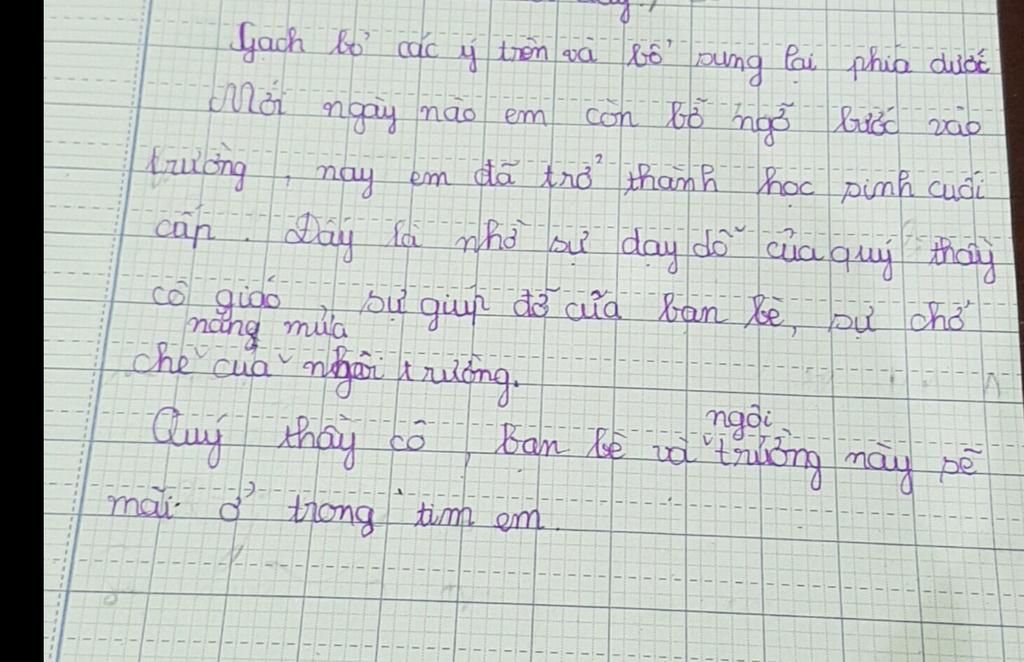 Gạch bỏ các ý trên và bổ sung lại phía dưới
Mới ngày nào em còn bỡ ngỡ bước vào
trường, nay em đã trở thành học sinh cuối
cấp. Đây là nhờ sự dạy dỗ của quý thầy
cô giáo, sự giúp đỡ của bạn bè, sự chở
nắng mưa
che của ngôi trường.
ngôi
Quý thầy cô, bạn bè và trường này sẽ
mãi ở trong tim em.